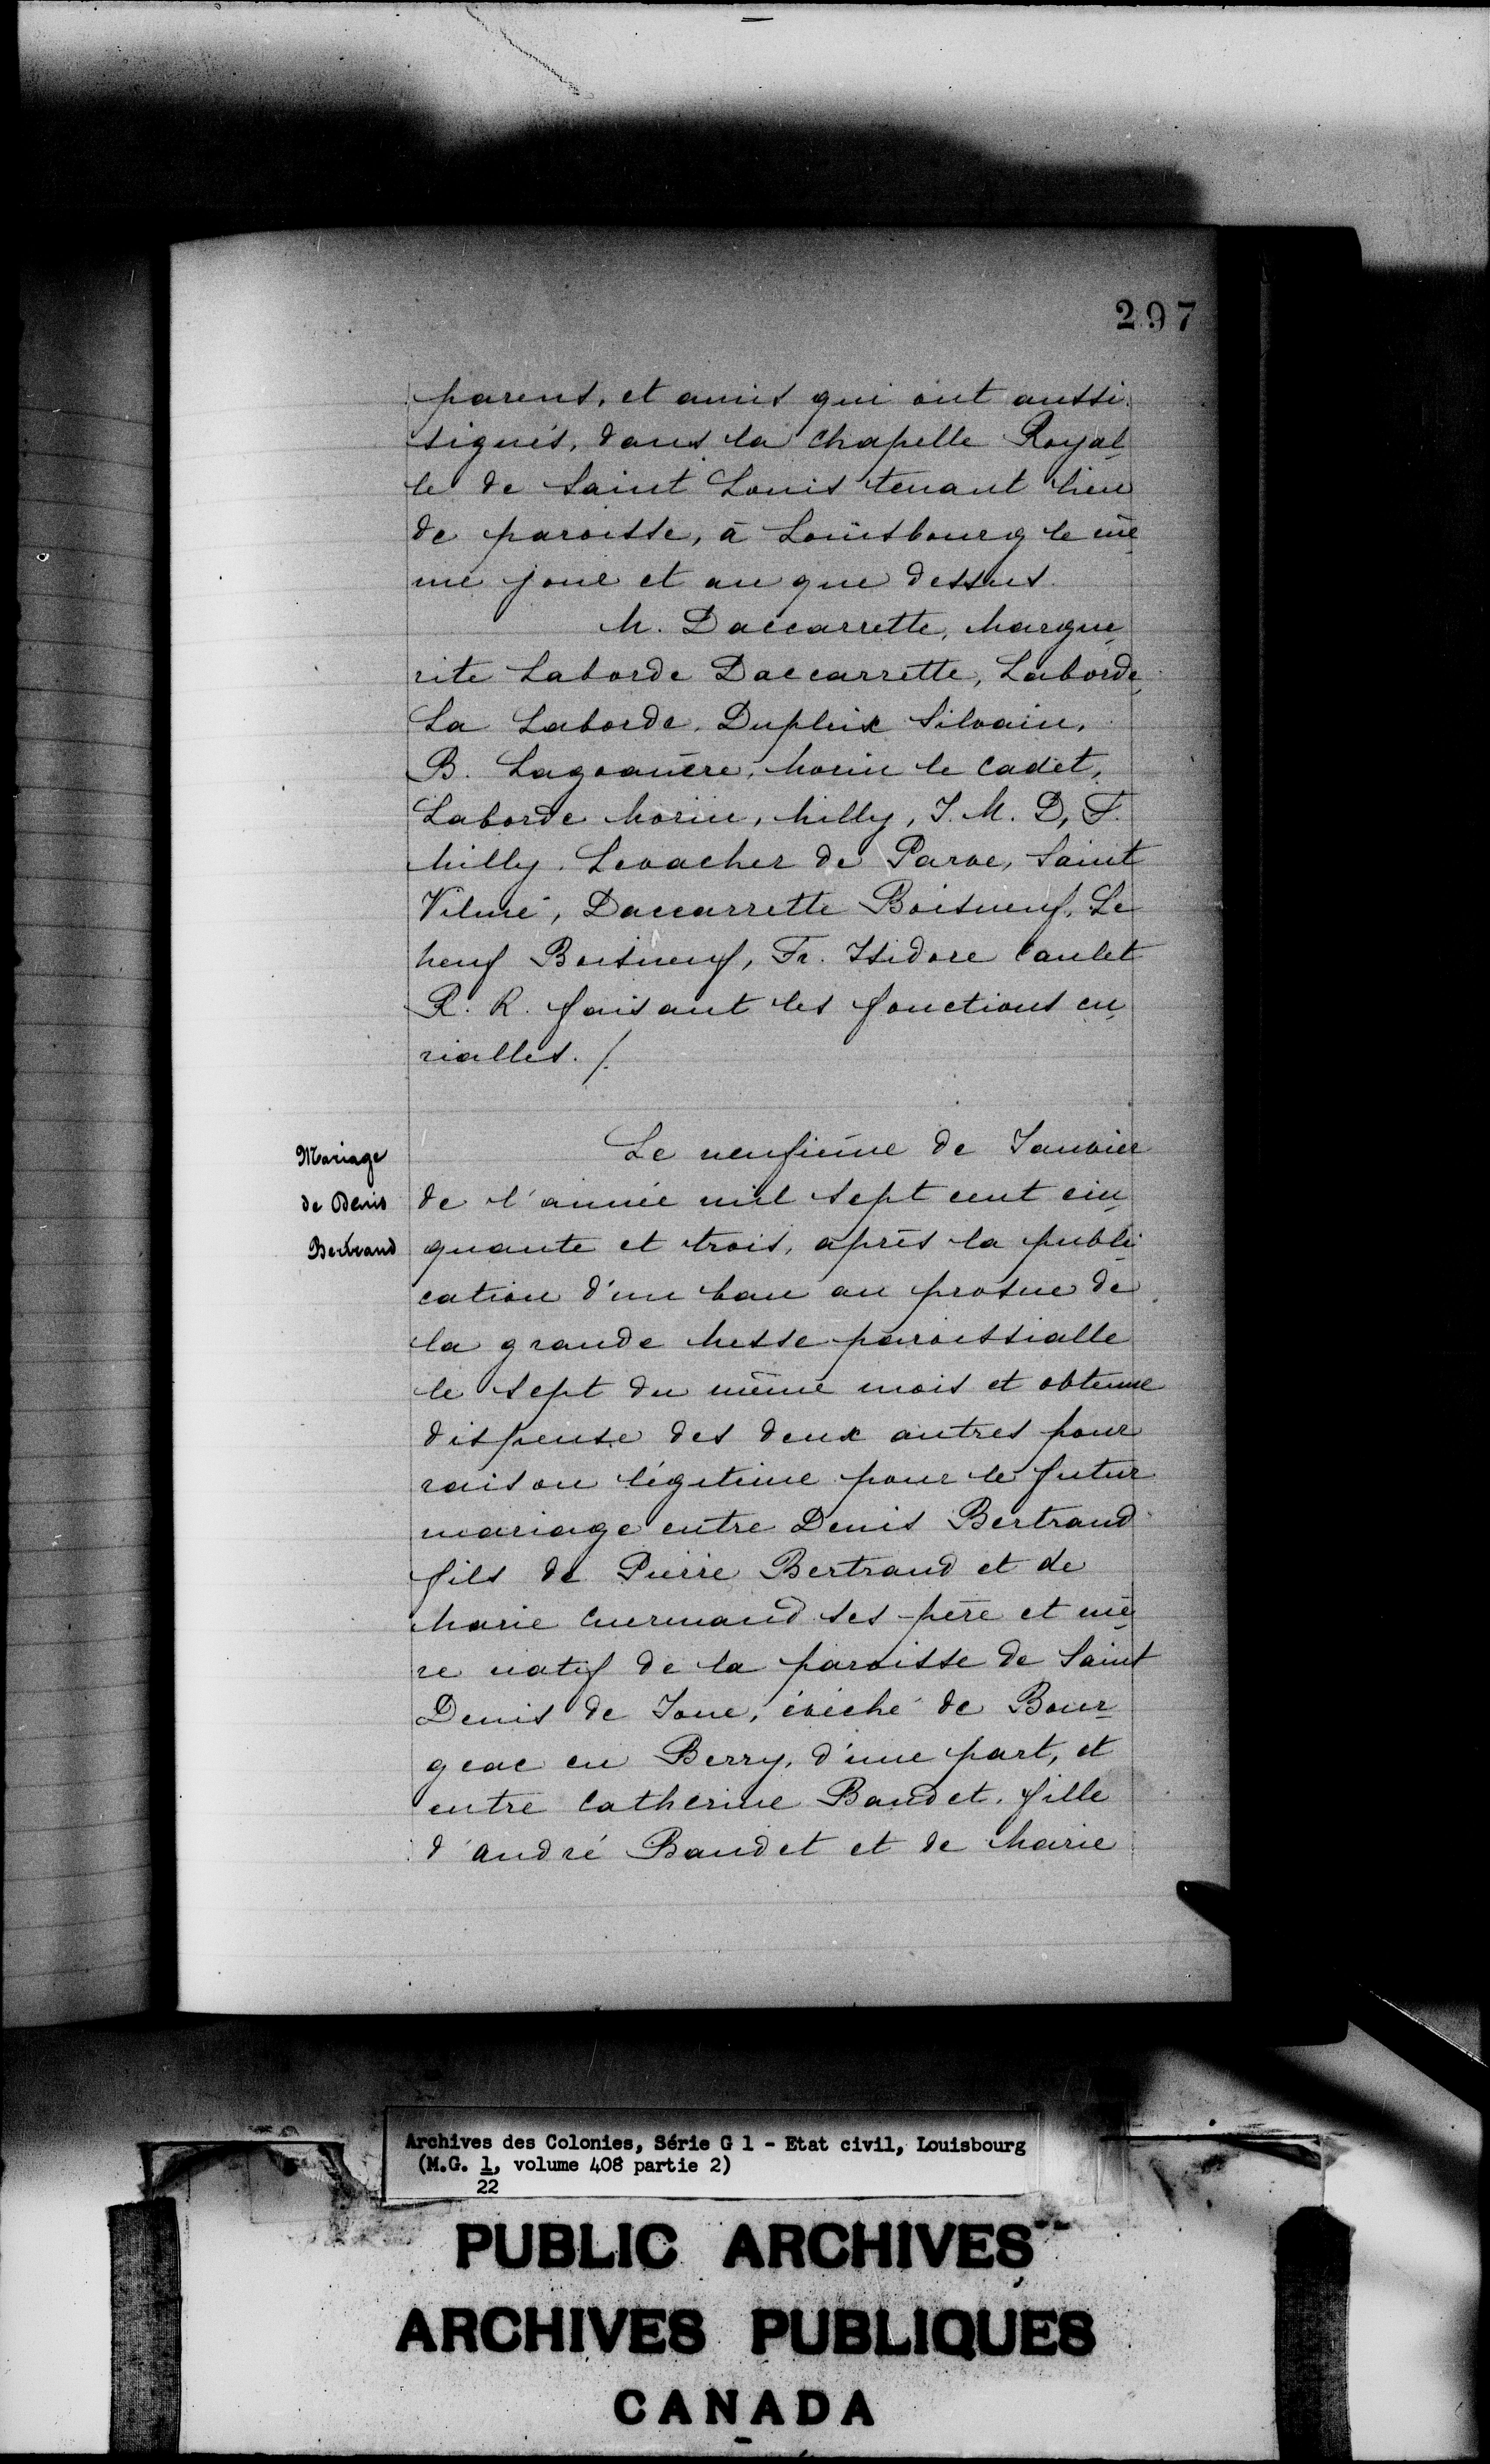 297
parens, et amis qui ont aussi
signés, dans la chapelle Royal
le de Saint Louis tenant lieu
de paroisse, à Louisbourg le mê
me jour et an que dessus.
M. Daccarrette, Margue
rite Laborde Daccarrette, Laborde,
La Laborde, Dupleix Silvain,
B. Lagoanère, Morin le Cadet,
Laborde Morin, Milly, J. M. D, F.
Milly, Levacher de Parve, Saint
Vilmé, Daccarrette Boisneuf, Le
neuf Boisneuf, Fr. Isidore Caulet
R. R. faisant les fonctions cu
rialles. /.
Mariage
de Denis
Bertrand
Le neufième de Janvier
de l'année mil sept cent cin
quante et trois, après la publi
cation d'un ban au prosne de
la grande Messe paroissialle
le sept du même mois et obtenue
dispense des deux autres pour
raison légitime pour le futur
mariage entre Denis Bertrand
fils de Pierre Bertrand et de
Marie Curmand ses père et mè
re natif de la paroisse de Saint
Denis de Joue, évéché de Bour
geac en Berry, d'une part, et
entre Catherine Baudet, fille
d'André Baudet et de Marie
Archives des Colonies, Série G 1 - Etat civil, Louisbourg
(M.G. 1, volume 408 partie 2)
22
PUBLIC ARCHIVES
ARCHIVES PUBLIQUES
CANADA